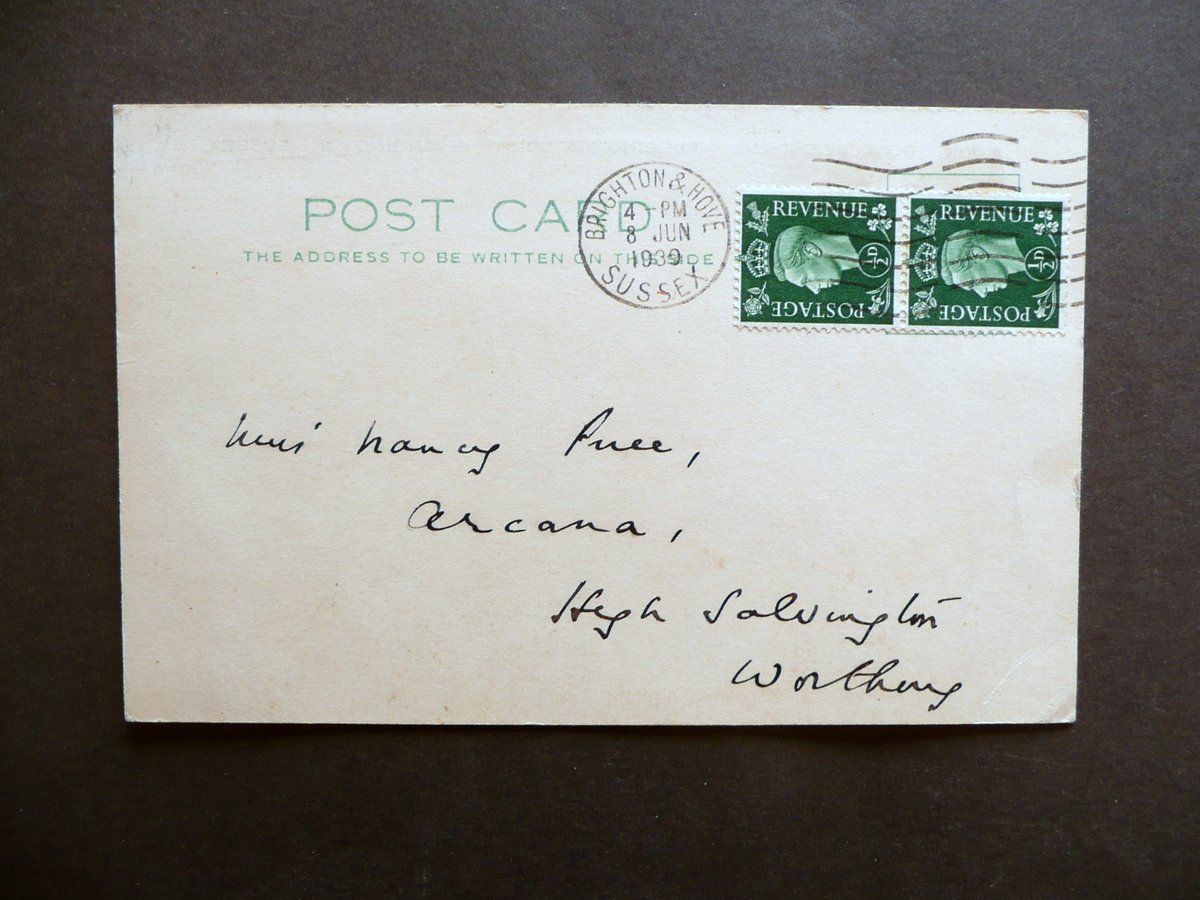 POST CARD
THE ADDRESS TO BE WRITTEN ON THIS SIDE
BRIGHTON & HOVE
4 - PM
8 JUN
1939
SUSSEX
REVENUE
½D
POSTAGE
REVENUE
½D
POSTAGE
Miss Nancy Price,
Arcana,
High Salvington
Worthing